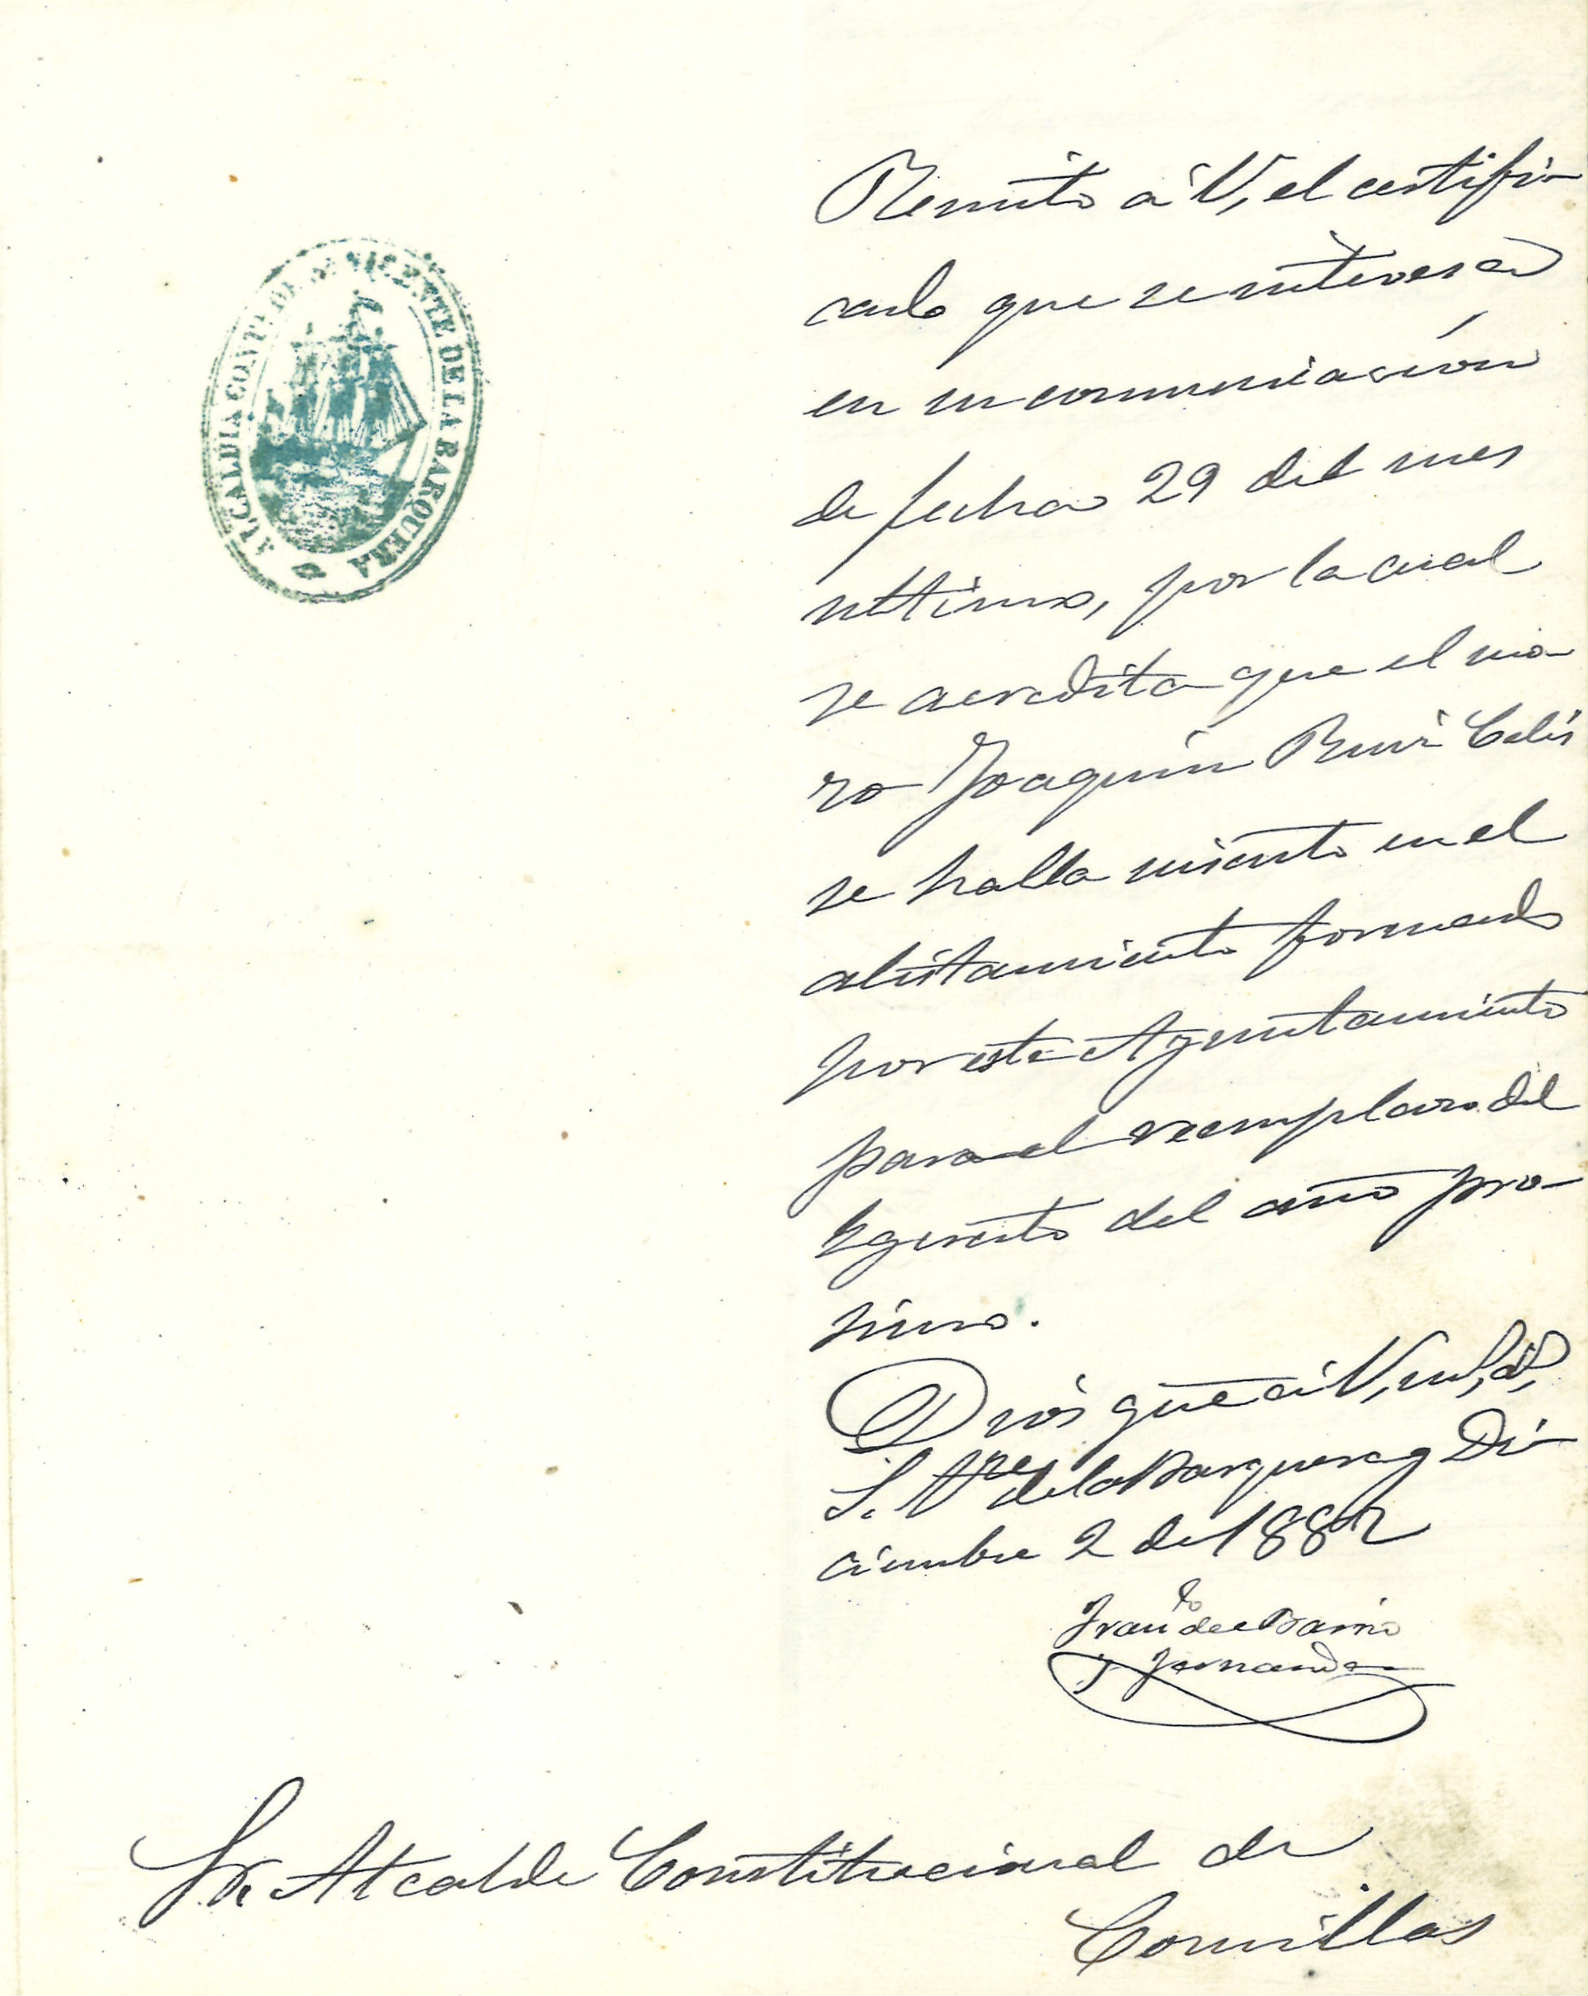 ALCALDIA CONTL. DE Sn. VICENTE DE LA BARQUERA
Remito á V, el certifi-
cado que se interesa
en su comunicación
de fecha 29 del mes
ultimo, por la cual
se acredita que el mo-
zo Joaquin Ruiz Celis
se halla inscrito en el
alistamiento formado
por este Ayuntamiento
para el reemplazo del
Egercito del año pro-
simo.
Dios gue á V, ms, as,
S. Vte de la Barquera y Di-
ciembre 2 de 1882
Franco del Barrio
y Fernandez
Sr. Alcalde Constitucional de
Comillas